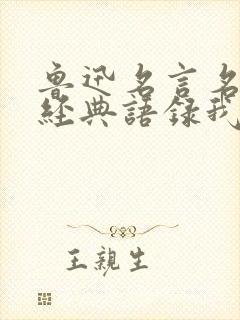 魯迅名言名
經典語錄我
王親生